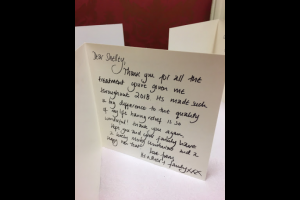 Dear Shelley,
Thank you for all the
treatment you've given me
throughout 2018. It's made such
a big difference to the quality
of my life having relief is so
wonderful! Thank you again,
Hope you and your family have
a lovely Christmas and a
Happy New Year!
love from
family xxx